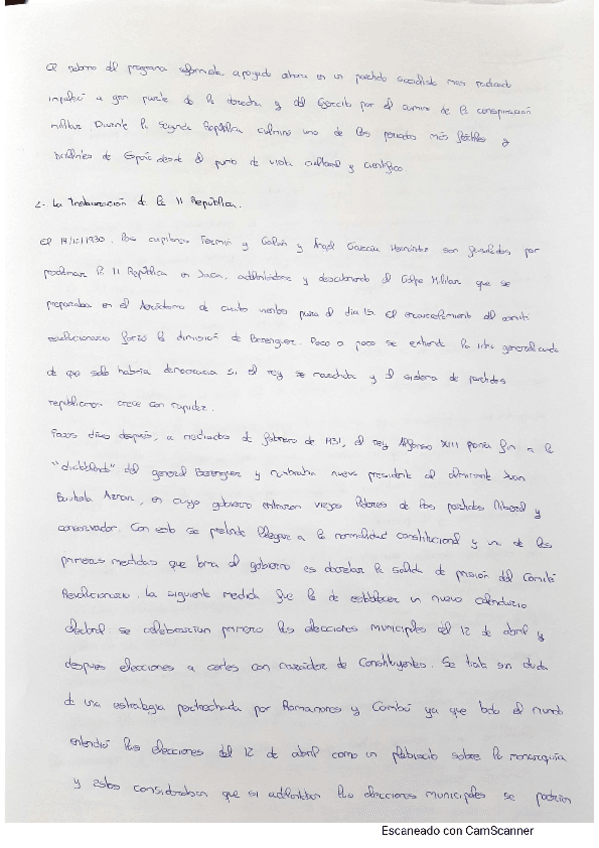 El retorno del programa reformista, apoyado ahora en un partido socialista mas radicado
impulsó a gran parte de la derecha y del Ejército por el camino de la conspiración
militar. Durante la Segunda República culmina uno de los periodos más fértiles y
brillantes de España desde el punto de vista cultural y científico.
2.- La Instauración de la II República.
El 14/12/1930, los capitanes Fermín y Galán y Ángel García Hernández son fusilados por
proclamar la II República en Jaca, adelantándose y descubriendo el Golpe Militar que se
preparaba en el Aeródromo de cuatro vientos para el día 15. El encarcelamiento del comité
revolucionario forzó la dimisión de Berenguer. Poco a poco se extiende la idea generalizada
de que solo habría democracia si el rey se marchaba y el sistema de partidos
republicanos crece con rapidez.
días después, a mediados de febrero de 1931, el rey Alfonso XIII ponía fin a la
"dictablanda" del general Berenguer y nombraba nuevo presidente al almirante Juan
Bautista Aznar, en cuyo gobierno entraron viejos líderes de los partidos liberal y
conservador. Con esto se pretende llegar a la normalidad constitucional y una de las
primeras medidas que toma el gobierno es decretar la salida de prisión del Comité
Revolucionario. La siguiente medida fue la de establecer un nuevo calendario
electoral: se celebrarían primero las elecciones municipales el 12 de abril y
después elecciones a cortes con carácter de Constituyentes. Se trata sin duda
de una estrategia pertrechada por Romanones y Cambó ya que todo el mundo
entendió las elecciones del 12 de abril como un plebiscito sobre la monarquía
y estos consideraban que si adelantaban las elecciones municipales se podrían
Escaneado con CamScanner